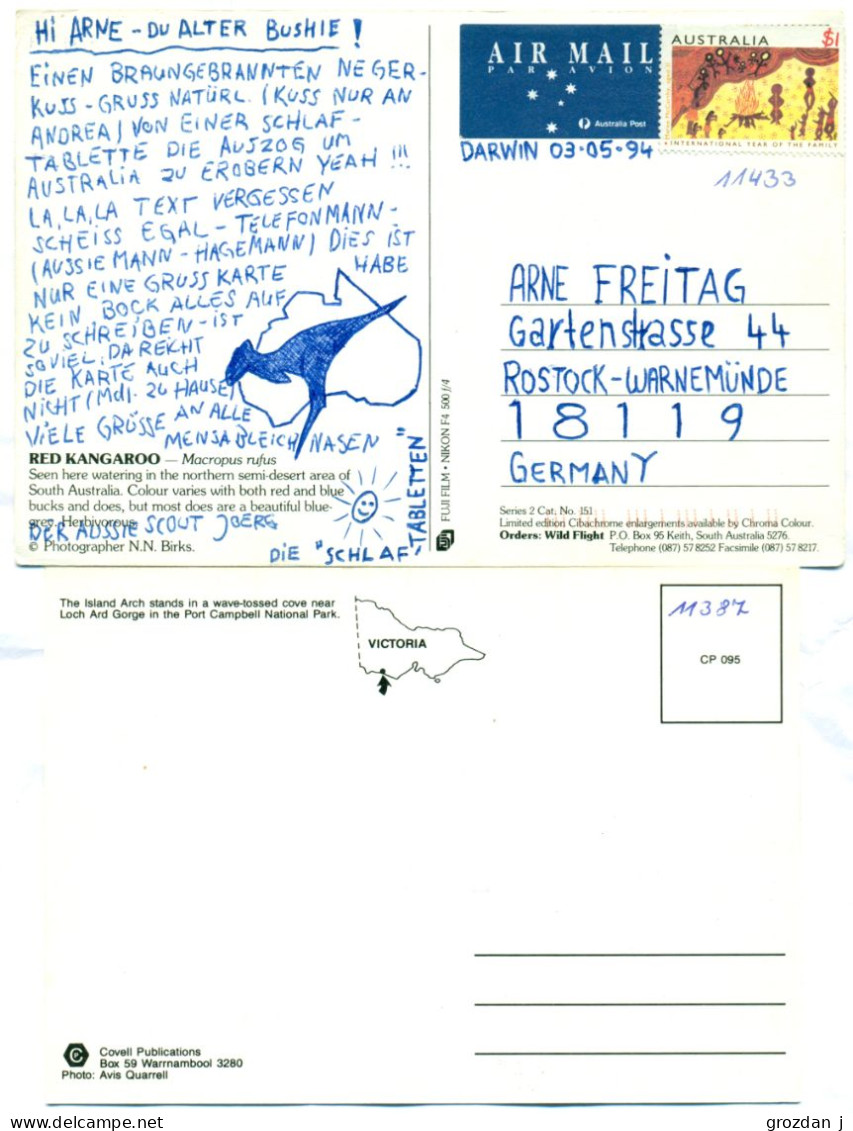 HI ARNE - DU ALTER BUSHIE !
EINEN BRAUNGEBRANNTEN NEGER-
KUSS - GRUSS NATÜRL. (KUSS NUR AN
ANDREA) VON EINER SCHLAF-
TABLETTE DIE AUSZOG UM
AUSTRALIA ZU EROBERN YEAH !!!
LA, LA, LA TEXT VERGESSEN
SCHEISS EGAL - TELEFONMANN -
(AUSSIE MANN - HAGEMANN) DIES IST
NUR EINE GRUSSKARTE HABE
KEIN BOCK ALLES AUF
ZU SCHREIBEN - IST
SOVIEL, DA REICHT
DIE KARTE AUCH
NICHT (Mdl. ZU HAUSE)
VIELE GRÜSSE AN ALLE
MENSABLEICHNASEN
RED KANGAROO — Macropus rufus
Seen here watering in the northern semi-desert area of
South Australia. Colour varies with both red and blue
bucks and does, but most does are a beautiful blue-
grey. Herbivorous.
DER AUSSIE SCOUT JOERG
© Photographer N.N. Birks.
DIE "SCHLAF-
TABLETTEN"
FUJI FILM • NIKON F4 500 f/4
AIR MAIL
PAR AVION
Australia Post
AUSTRALIA $1
INTERNATIONAL YEAR OF THE FAMILY
DARWIN 03.05.94
11433
ARNE FREITAG
Gartenstrasse 44
ROSTOCK-WARNEMÜNDE
18119
GERMANY
Series 2 Cat. No. 151
Limited edition Cibachrome enlargements available by Chroma Colour.
Orders: Wild Flight P.O. Box 95 Keith, South Australia 5276.
Telephone (087) 57 8252 Facsimile (087) 57 8217.
The Island Arch stands in a wave-tossed cove near
Loch Ard Gorge in the Port Campbell National Park.
VICTORIA
11387
CP 095
Covell Publications
Box 59 Warrnambool 3280
Photo: Avis Quarrell
grozdan j